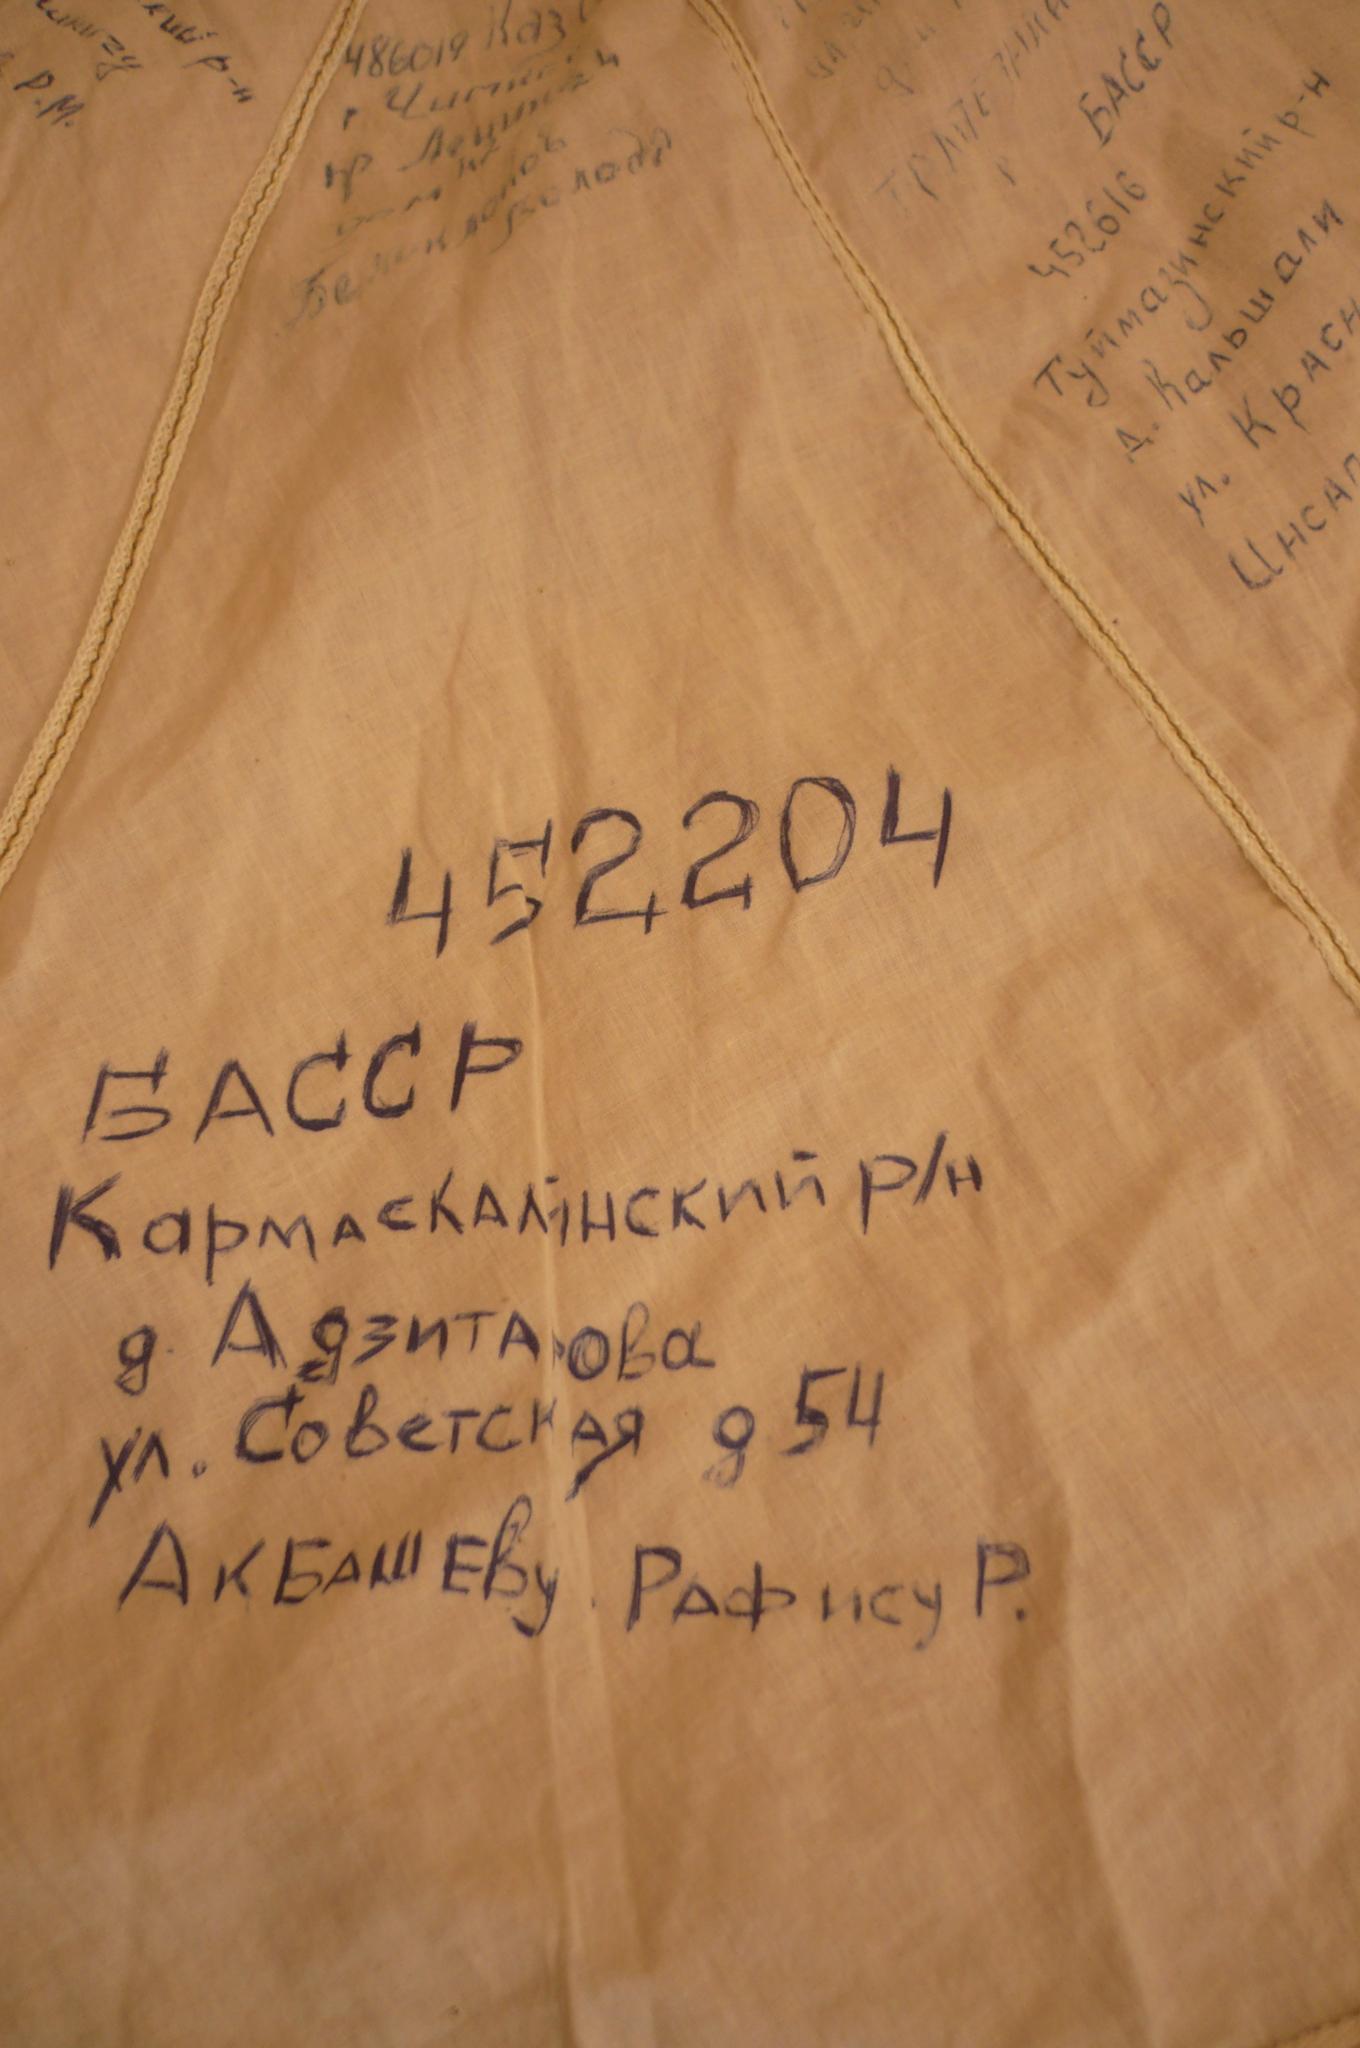 р-н
Р.М.
486019 Каз
г. Чимкент
пр Ленина
БАССР
452616
Туймазинский р-н
д. Кальшали
ул. Красн
Инсап
452204
БАССР
Кармаскалинский р/н
д. Адзитарова
ул. Советская д 54
Акбашеву. Рафису Р.